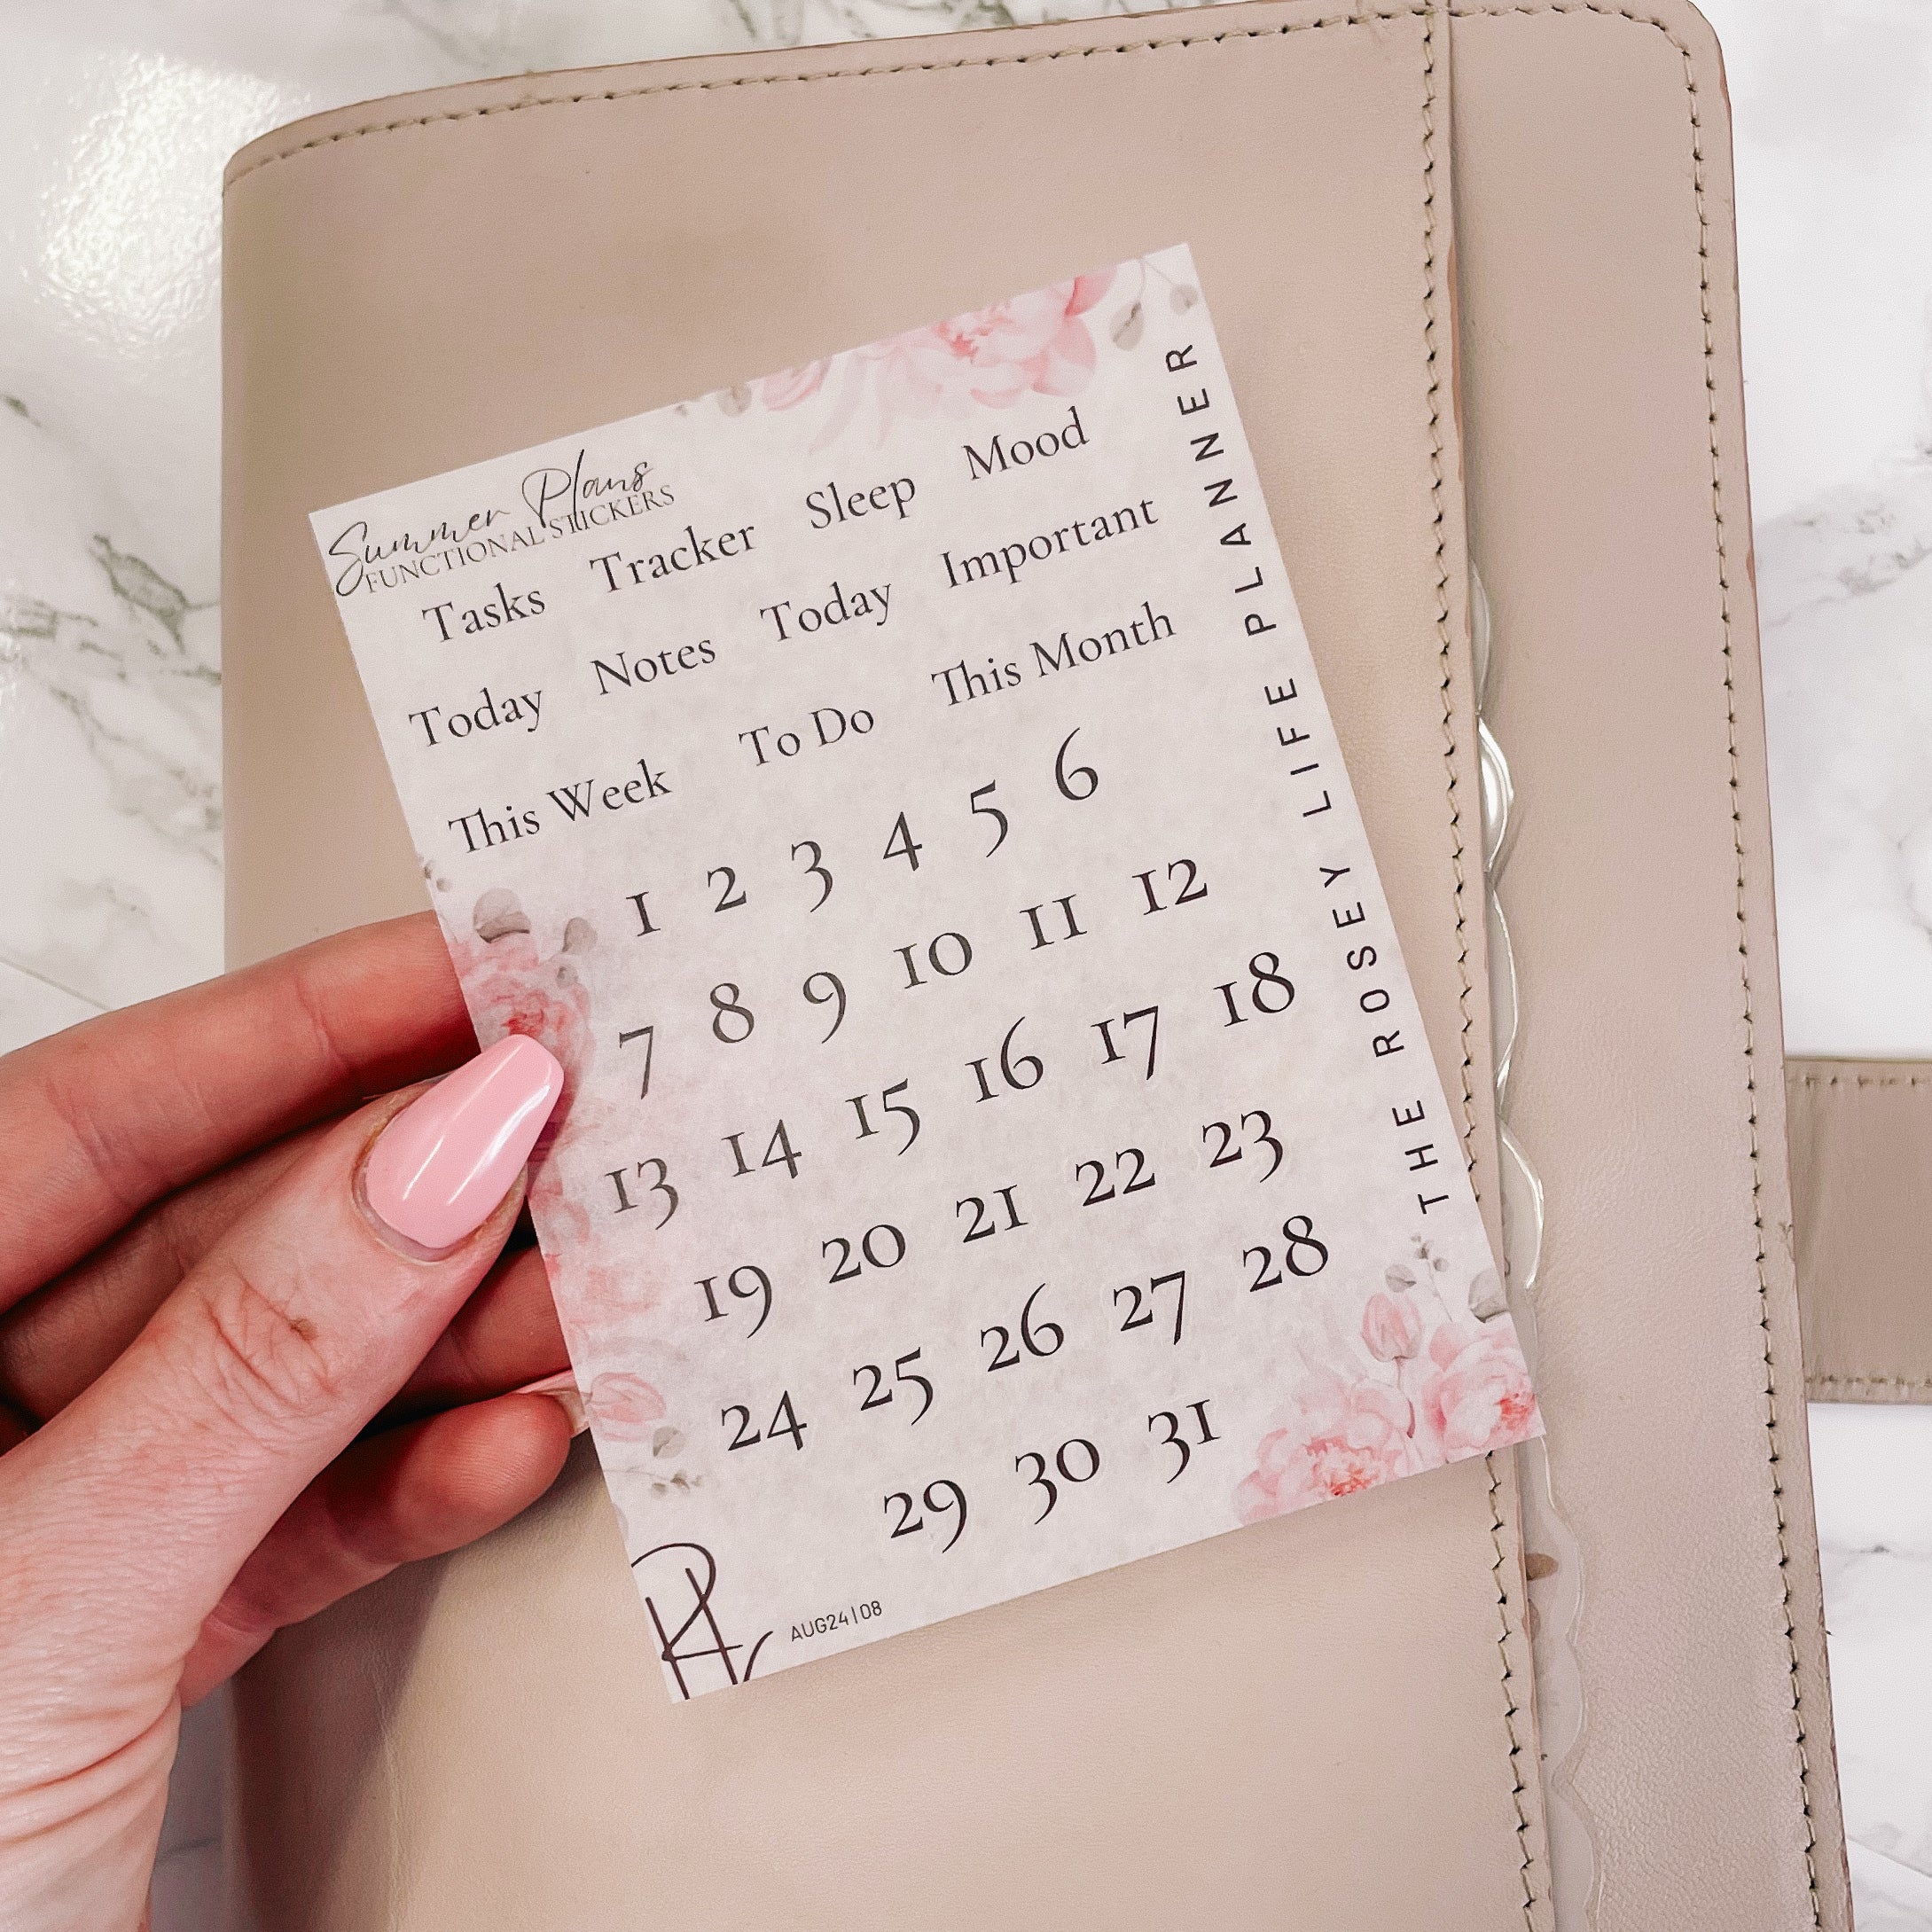 Summer Plans
FUNCTIONAL STICKERS
Tasks Tracker Sleep Mood
Today Notes Today Important
This Week To Do This Month
1 2 3 4 5 6
7 8 9 10 11 12
13 14 15 16 17 18
19 20 21 22 23
24 25 26 27 28
29 30 31
AUG24|08
THE ROSEY LIFE PLANNER